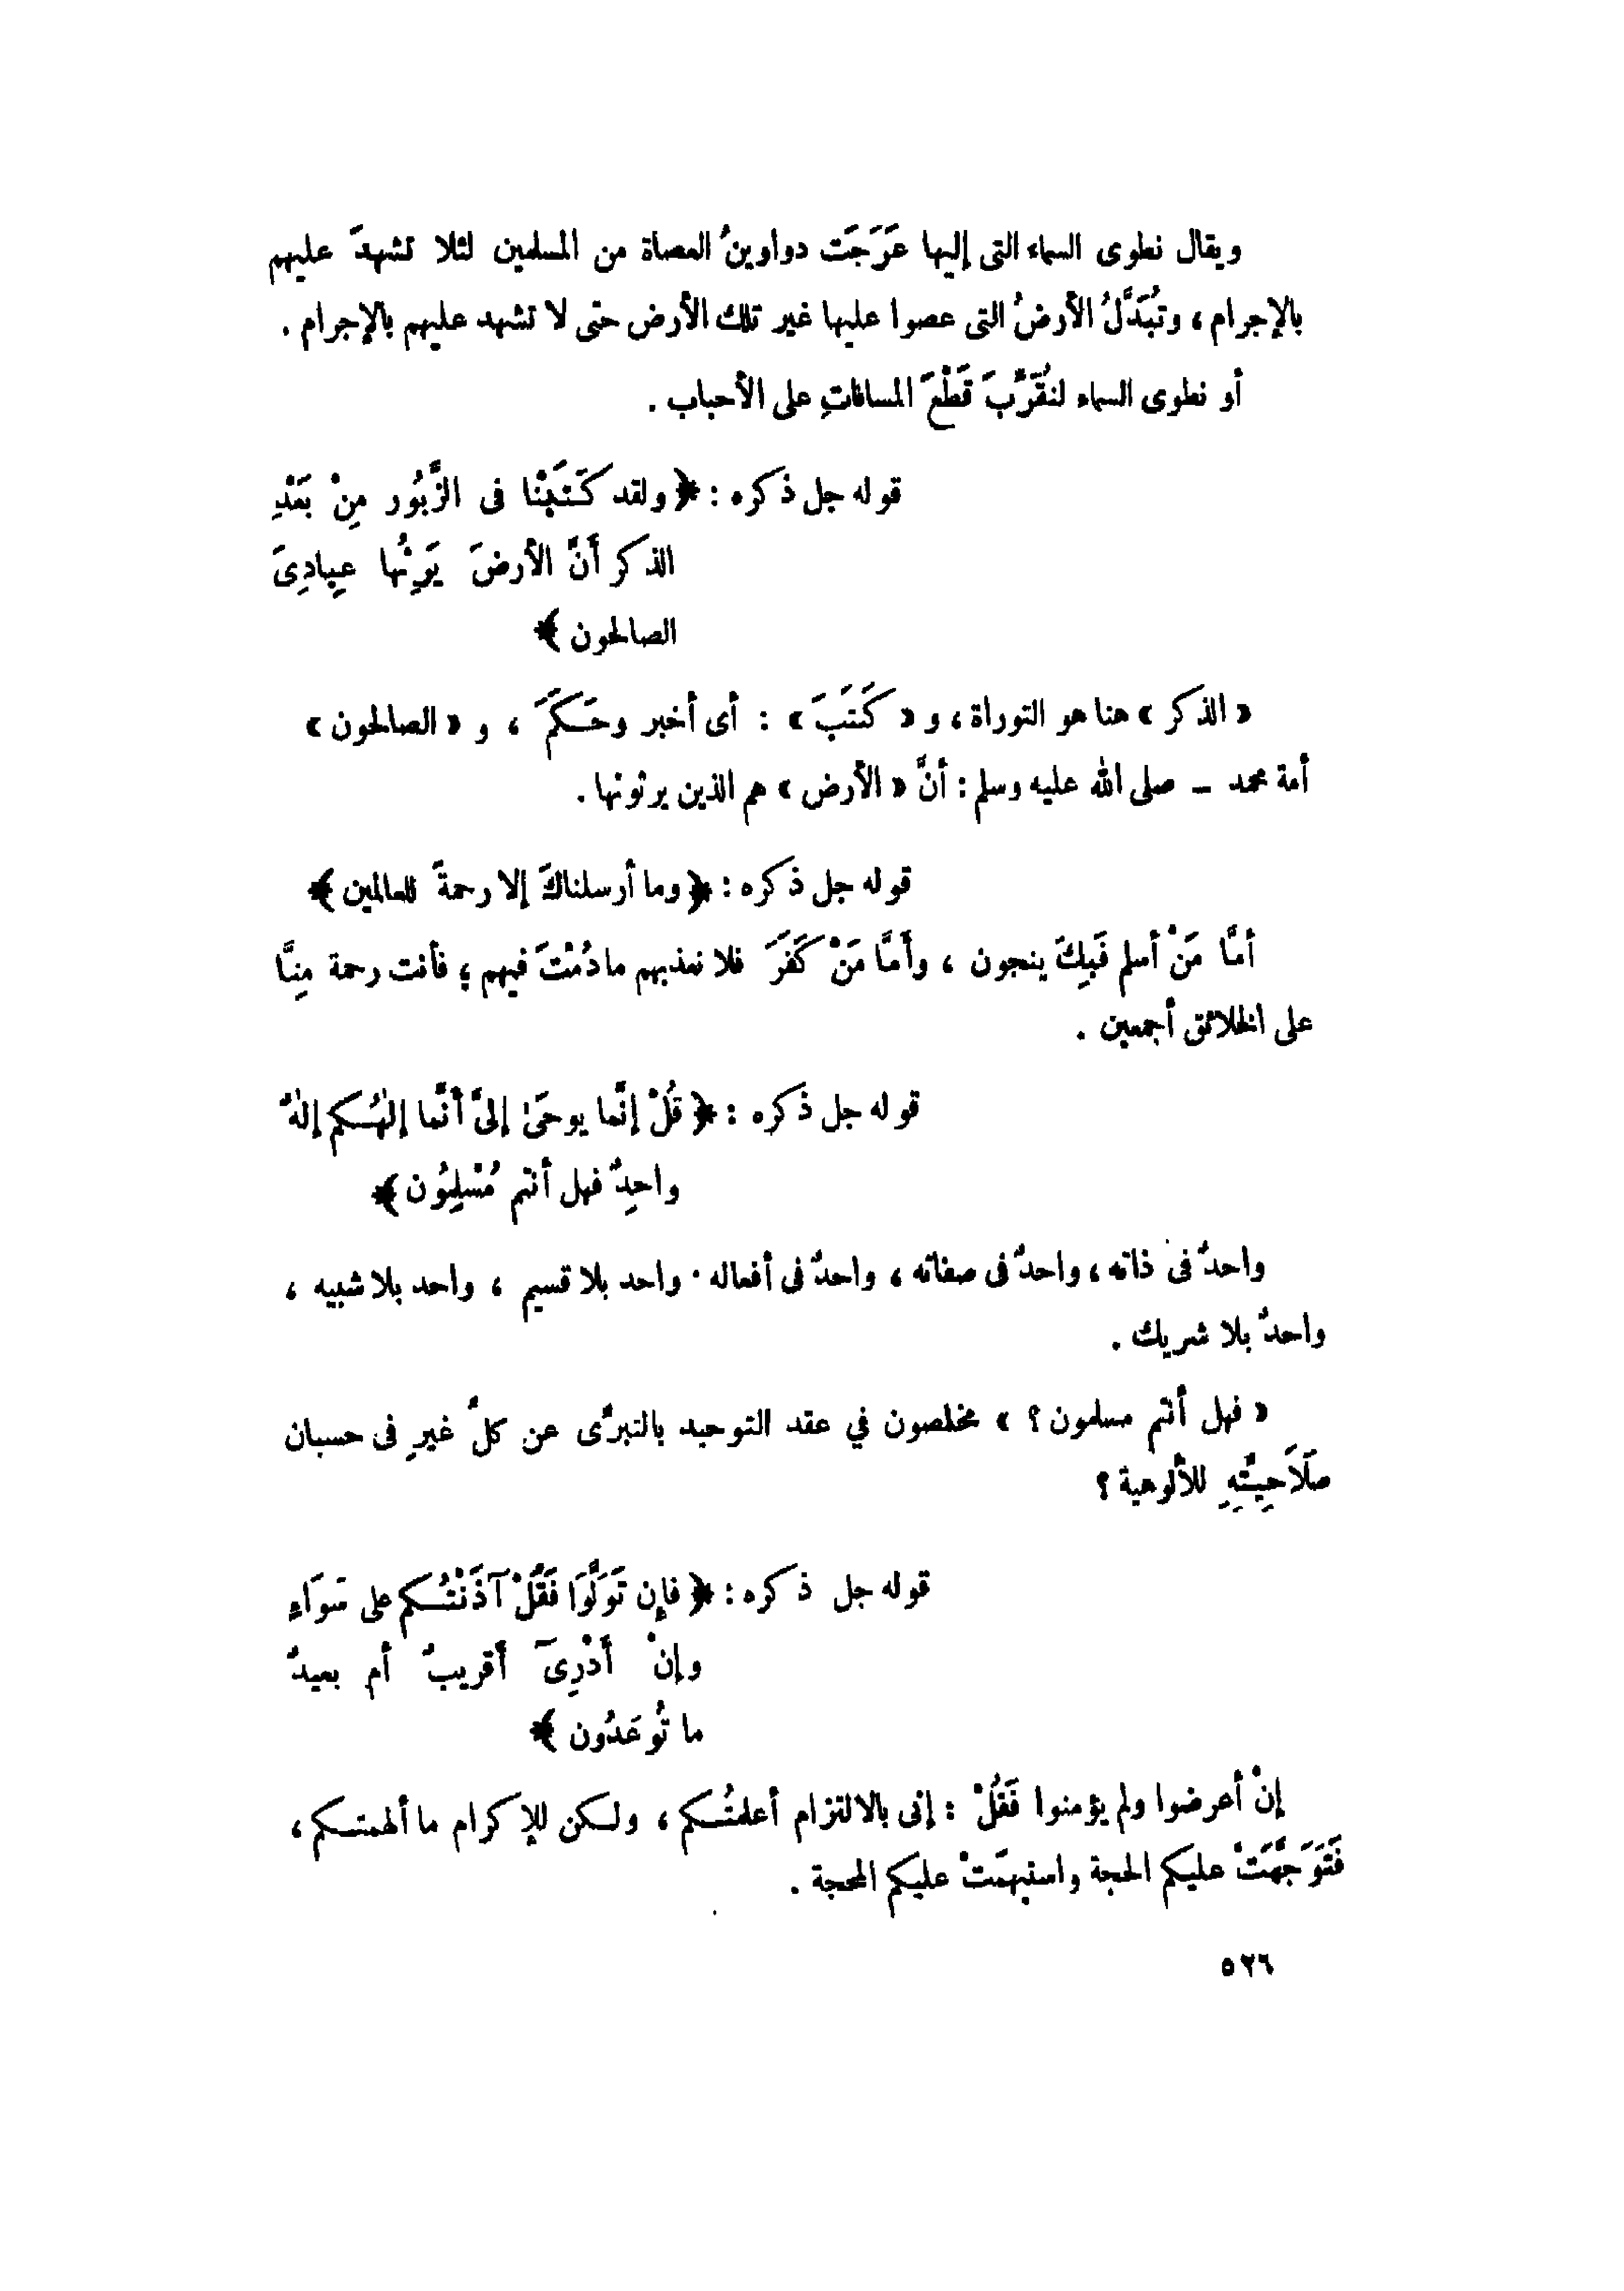 ويقال نطوى السماء التى إليها عَرَجَت دواوينُ العصاة من المسلمين لئلا تشهدَ عليهم
بالإجرام ، وتُبَدَّلُ الأرضُ التى عصوا عليها غير تلك الأرض حتى لا تشهد عليهم بالإجرام .
أو نطوى السماء لنُقَرِّبَ قَطْعَ المسافاتِ على الأحباب .
قوله جل ذكره : ﴿ ولقد كَتَبْنَا فى الزَّبُور مِنْ بَعْدِ
الذكر أنَّ الأرضَ يَرِثُها عِبادِىَ
الصالحون ﴾
« الذكر » هنا هو التوراة ، و « كَتَبَ » : أى أخبر وحَكَمَ ، و « الصالحون »
أمة محمد – صلى الله عليه وسلم : أنَّ « الأرض » هم الذين يرثونها .
قوله جل ذكره : ﴿ وما أرسلناكَ إلا رحمةً للعالمين ﴾
أمَّا مَنْ أسلم فَبِكَ ينجون ، وأَمَّا مَنْ كَفَرَ فلا نعذبهم مادُمْتَ فيهم ؛ فأنت رحمة مِنَّا
على الخلائق أجمعين .
قوله جل ذكره : ﴿ قُلْ إنَّما يوحَىٰ إلىَّ أنَّما إلٰهُكم إلهٌ
واحِدٌ فهل أنتم مُسْلِمُون ﴾
واحدٌ فى ذاته ، واحدٌ فى صفاته ، واحدٌ فى أفعاله . واحد بلا قسيم ، واحد بلا شبيه ،
واحدٌ بلا شريك .
« فهل أنتم مسلمون ؟ » مخلصون في عقد التوحيد بالتبرِّى عن كلِّ غيرٍ فى حسبان
صَلَاحِيَّتِهِ للألوهية ؟
قوله جل ذكره : ﴿ فإن تَوَلَّوْا فَقُلْ آذَنْتُكم على سَوَاءٍ
وإنْ أَدْرِىٓ أقريبٌ أم بعيدٌ
ما تُوعَدُون ﴾
إنْ أعرضوا ولم يؤمنوا فَقُلْ : إنى بالالتزام أعلمتُكم ، ولكن للإكرام ما ألهمتكم ،
فَتَوَجَّهَتْ عليكم الحجة واستبهمَتْ عليكم المحجة .
٥٢٦